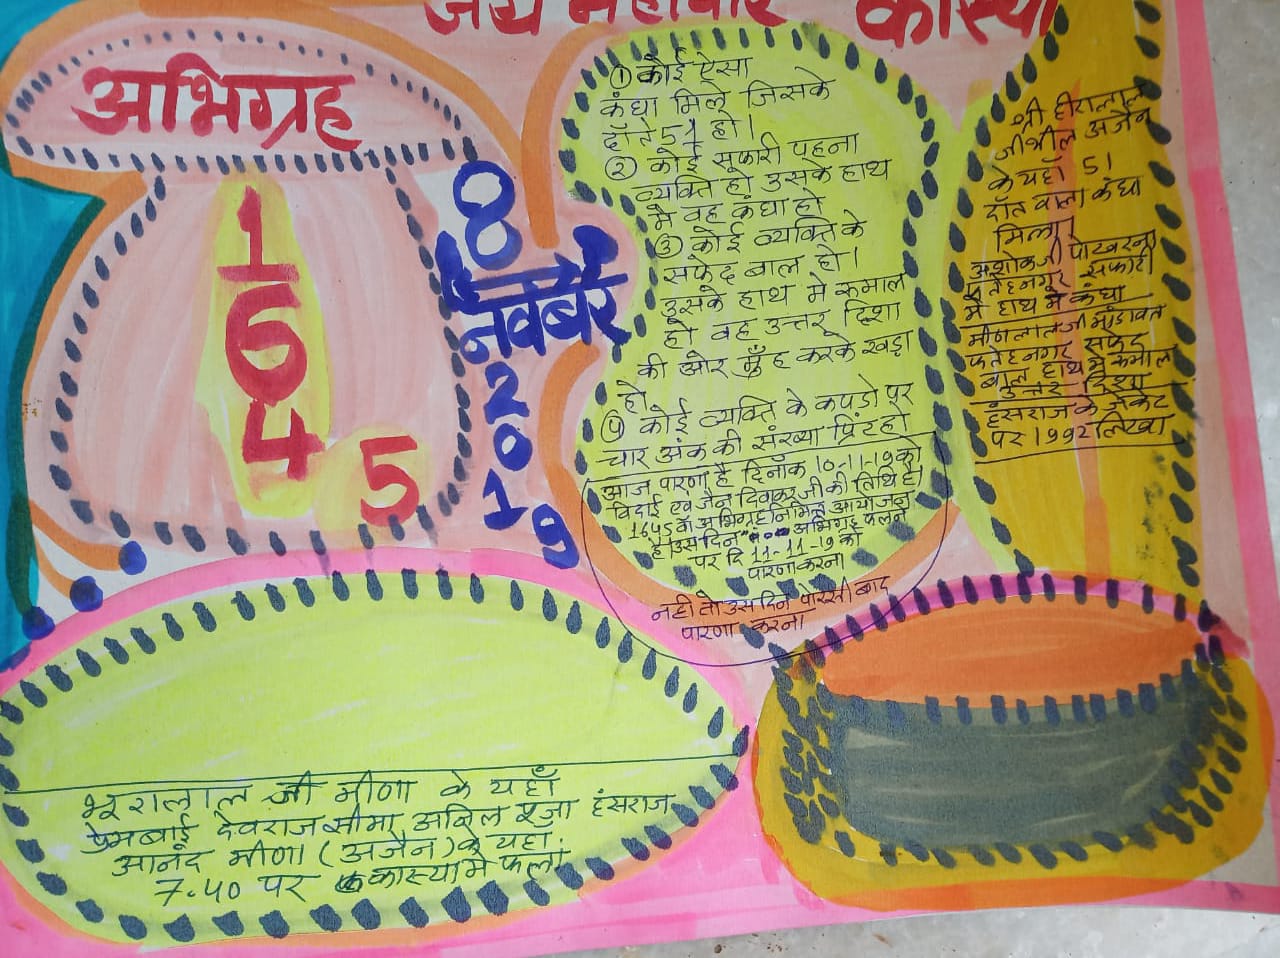 जय महावीर कास्या
अभिग्रह
1
6
4
5
08
नवंबर
2
0
1
9
① कोई ऐसा
कंघा मिले जिसके
दाँते 51 हो।
② कोई सफारी पहना
व्यक्ति हो उसके हाथ
मे वह कंघा हो
③ कोई व्यक्ति के
सफेद बाल हो।
उसके हाथ मे रुमाल
हो वह उत्तर दिशा
की और मुँह करके खड़ा
हो
④ कोई व्यक्ति के कपडो पर
चार अंक की संख्या प्रिंट हो
आज पारणा है दिनाँक 10-11-19 को
विदाई एवं जैन दिवाकर जी की तिथि है।
1645 वाँ अभिग्रह निमित आयोजन
है। उस दिन अभिग्रह फलने
पर दि 11-11-19 को
पारणा करना
नही तो उस दिन पोरसी बाद
पारणा करना
श्री हीरालाल
जी भील अजैन
के यहाँ 51
दाँत वाला कंघा
मिला।
अशोकजी पोखरना
फतेहनगर सफारी
मे हाथ मे कंघा
मीठालालजी मांडावत
फतेहनगर सफेद
बाल हाथ मे रुमाल
उत्तर दिशा
हंसराज के जेकेट
पर 1992 लिखा
भूरालाल जी मीणा के यहाँ
प्रेमबाई देवराज सीमा अनिल पूजा हंसराज
आनंद मीणा (अजैन) के यहाँ
7.40 पर कास्या मे फला।